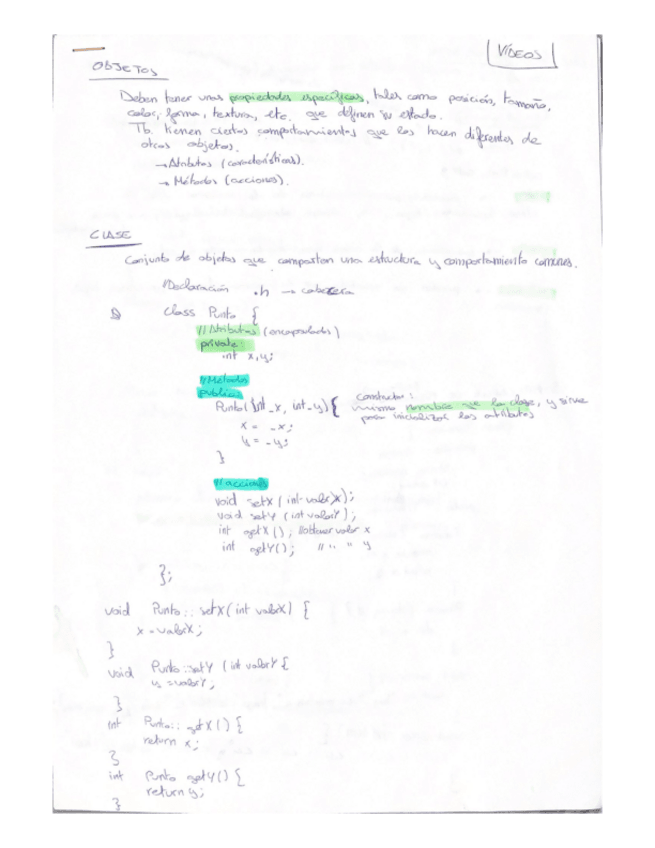 VÍDEOS
OBJETOS
Deben tener unas propiedades específicas, tales como posición, tamaño,
color, forma, textura, etc. que definen su estado.
Tb. tienen ciertos comportamientos que los hacen diferentes de
otros objetos.
→ Atributos (características).
→ Métodos (acciones).
CLASE
Conjunto de objetos que comparten una estructura y comportamiento comunes.
Declaración .h → cabecera
class Punto {
// Atributos (encapsulados)
private:
int x,y;
// Métodos
public:
Punto (int _x, int _y) {
constructor:
mismo nombre que la clase, y sirve
para inicializar los atributos
x = _x;
y = _y;
}
// acciones
void setX (int valorX);
void setY (int valorY);
int getX (); //obtener valor x
int getY(); // " " y
};
void Punto:: setX( int valorX) {
x = valorX;
}
void Punto::setY (int valorY {
y = valorY;
}
int Punto:: getX () {
return x;
}
int Punto getY() {
return y;
}